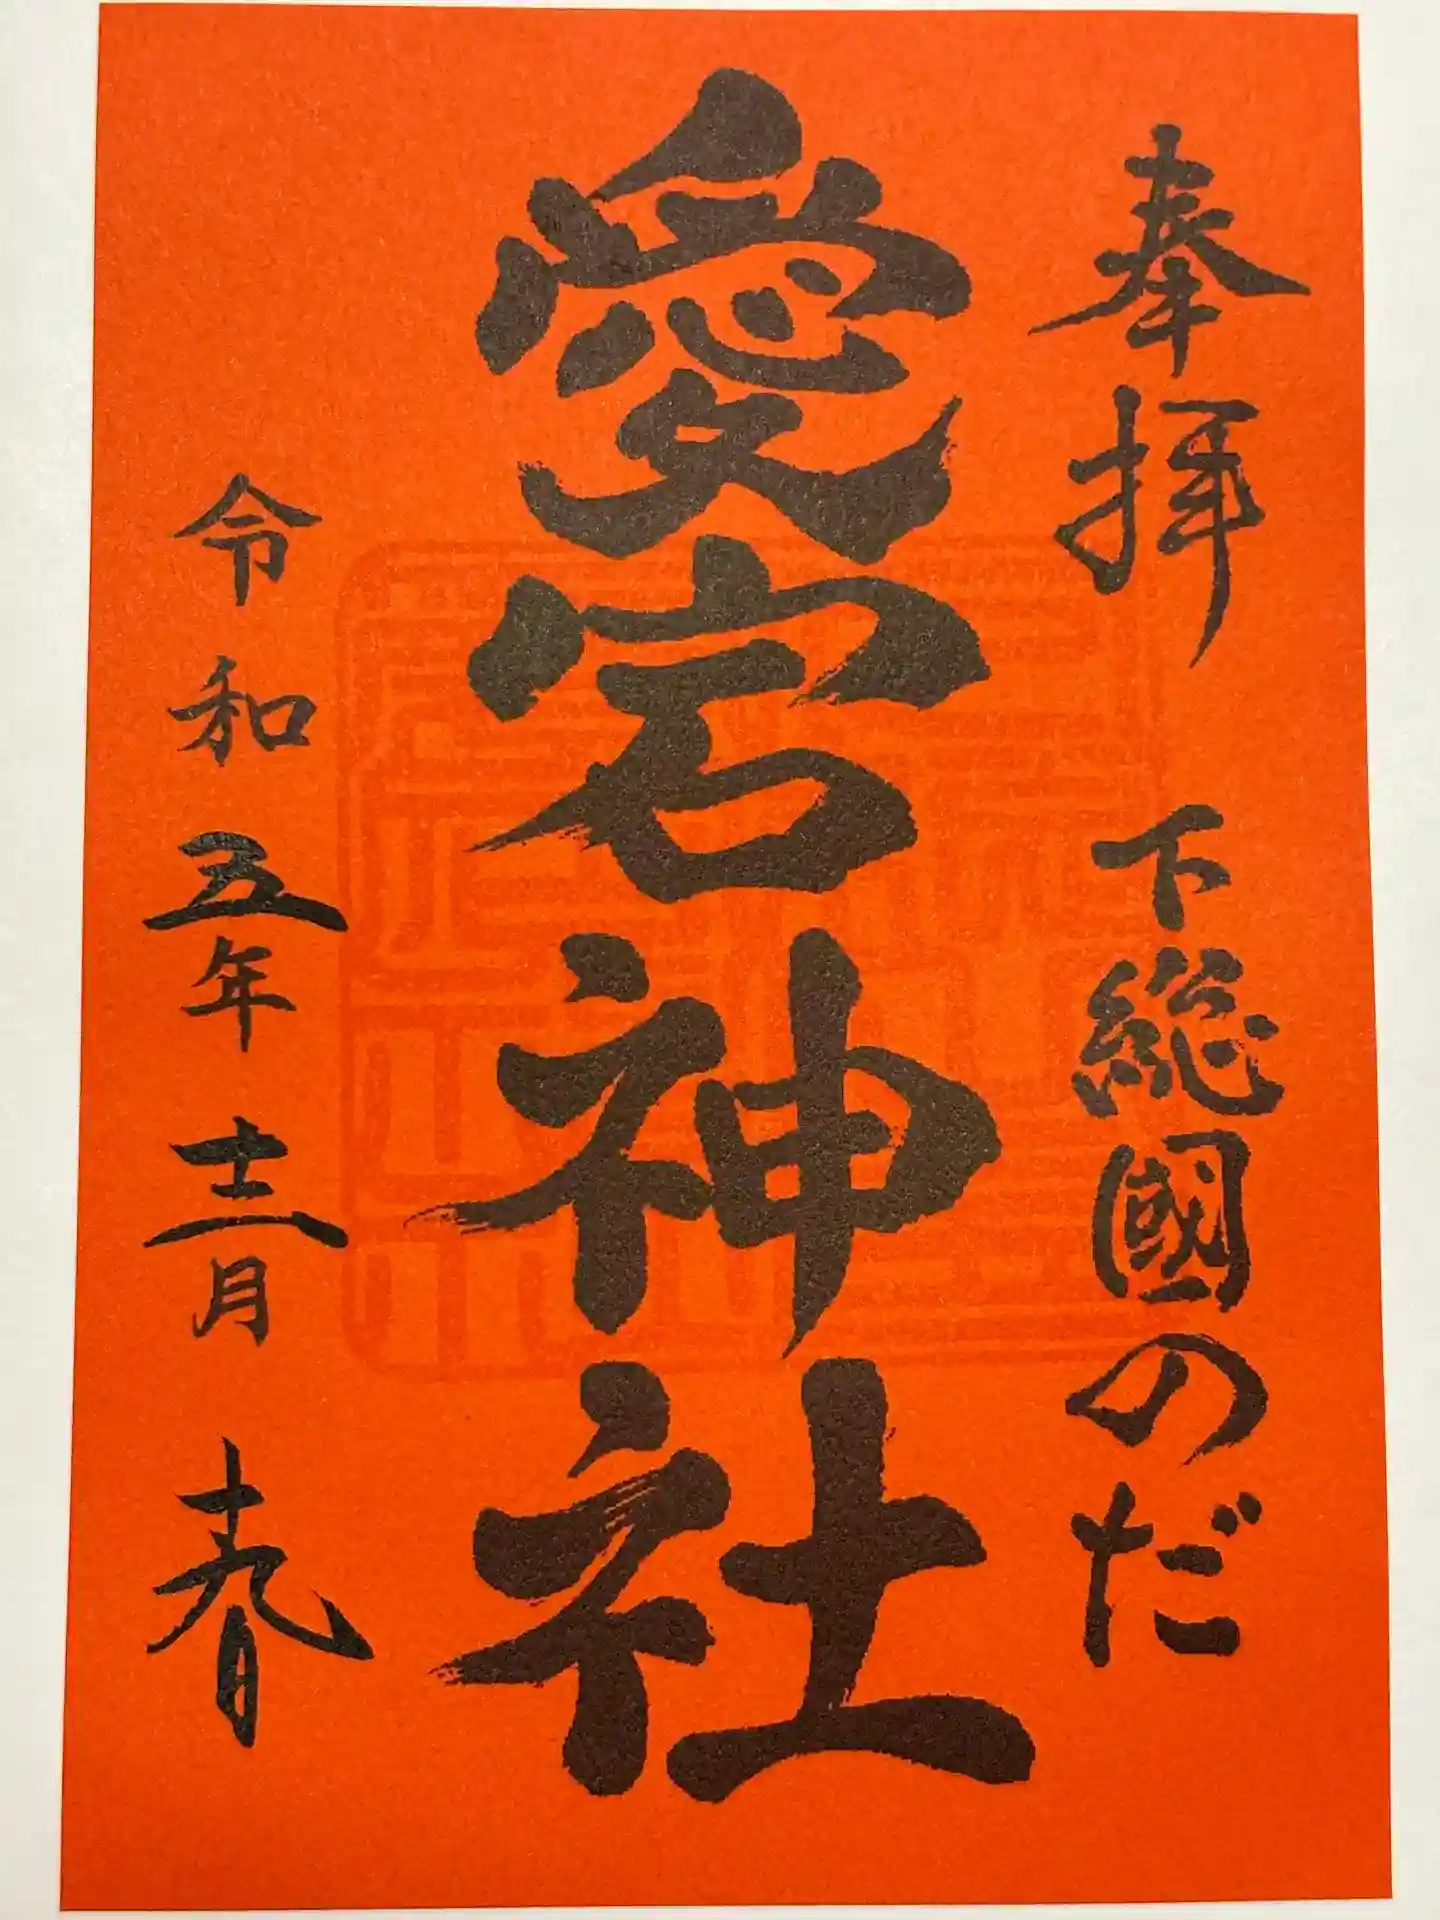 奉拝 下総國のだ
愛宕神社
令和五年十二月十九日